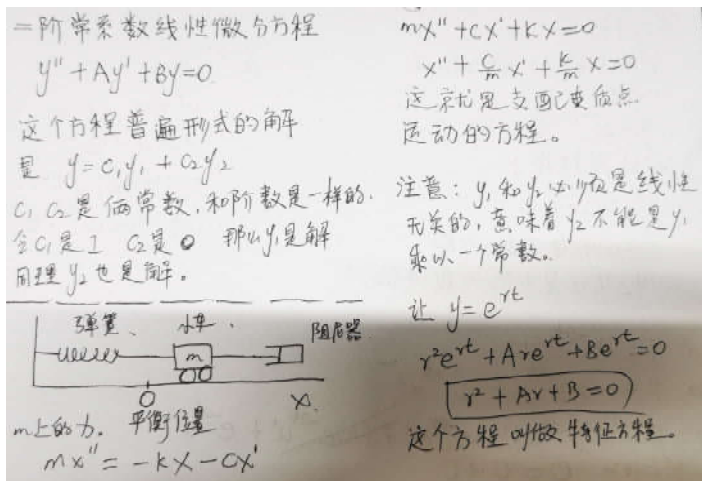 二阶常系数线性微分方程
y'' + Ay' + By = 0
这个方程普遍形式的解
是 y = C₁y₁ + C₂y₂
C₁ C₂是俩常数,和阶数是一样的.
令C₁是1 C₂是0 那么y₁是解
同理y₂也是解。
弹簧、 小车、 阻尼器
m
O x
m上的力. 平衡位置
mx'' = -kx - cx'
mx'' + cx' + kx = 0
x'' + c/m x' + k/m x = 0
这就是支配质点
运动的方程。
注意: y₁和y₂必须是线性
无关的,意味着y₂不能是y₁
乘以一个常数。
让 y = e^{rt}
r²e^{rt} + Are^{rt} + Be^{rt} = 0
r² + Ar + B = 0
这个方程叫做特征方程。